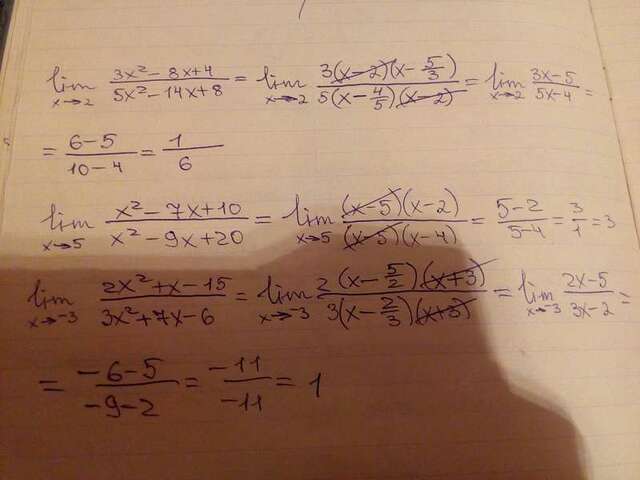 lim x→2 (3x² - 8x + 4)/(5x² - 14x + 8) = lim x→2 3(x-2)(x - 5/3)/5(x - 4/5)(x-2) = lim x→2 (3x-5)/(5x-4) =
= (6-5)/(10-4) = 1/6
lim x→5 (x² - 7x + 10)/(x² - 9x + 20) = lim x→5 (x-5)(x-2)/(x-5)(x-4) = (5-2)/(5-4) = 3/1 = 3
lim x→-3 (2x² + x - 15)/(3x² + 7x - 6) = lim x→-3 2(x - 5/2)(x+3)/3(x - 2/3)(x+3) = lim x→-3 (2x-5)/(3x-2) =
= (-6-5)/(-9-2) = -11/-11 = 1